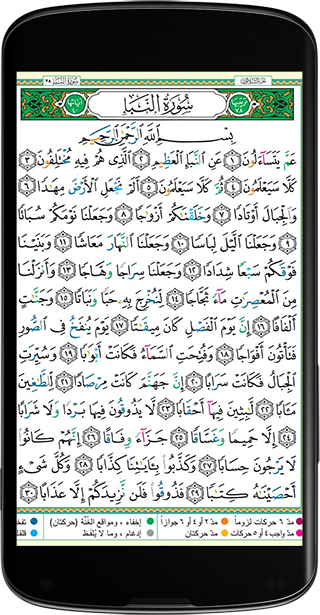 سُورَةُ النَّبَإِ ٧٨
سُورَةُ النَّبَإِ
بِسۡمِ ٱللَّهِ ٱلرَّحۡمَٰنِ ٱلرَّحِيمِ
عَمَّ يَتَسَآءَلُونَ ١ عَنِ ٱلنَّبَإِ ٱلۡعَظِيمِ ٢ ٱلَّذِي هُمۡ فِيهِ مُخۡتَلِفُونَ ٣
كَلَّا سَيَعۡلَمُونَ ٤ ثُمَّ كَلَّا سَيَعۡلَمُونَ ٥ أَلَمۡ نَجۡعَلِ ٱلۡأَرۡضَ مِهَٰدٗا ٦
وَٱلۡجِبَالَ أَوۡتَادٗا ٧ وَخَلَقۡنَٰكُمۡ أَزۡوَٰجٗا ٨ وَجَعَلۡنَا نَوۡمَكُمۡ سُبَاتٗا
٩ وَجَعَلۡنَا ٱلَّيۡلَ لِبَاسٗا ١٠ وَجَعَلۡنَا ٱلنَّهَارَ مَعَاشٗا ١١ وَبَنَيۡنَا
فَوۡقَكُمۡ سَبۡعٗا شِدَادٗا ١٢ وَجَعَلۡنَا سِرَاجٗا وَهَّاجٗا ١٣ وَأَنزَلۡنَا
مِنَ ٱلۡمُعۡصِرَٰتِ مَآءٗ ثَجَّاجٗا ١٤ لِّنُخۡرِجَ بِهِۦ حَبّٗا وَنَبَاتٗا ١٥ وَجَنَّٰتٍ
أَلۡفَافًا ١٦ إِنَّ يَوۡمَ ٱلۡفَصۡلِ كَانَ مِيقَٰتٗا ١٧ يَوۡمَ يُنفَخُ فِي ٱلصُّورِ
فَتَأۡتُونَ أَفۡوَاجٗا ١٨ وَفُتِحَتِ ٱلسَّمَآءُ فَكَانَتۡ أَبۡوَٰبٗا ١٩ وَسُيِّرَتِ
ٱلۡجِبَالُ فَكَانَتۡ سَرَابًا ٢٠ إِنَّ جَهَنَّمَ كَانَتۡ مِرۡصَادٗا ٢١ لِّلطَّٰغِينَ
مَـَٔابٗا ٢٢ لَّٰبِثِينَ فِيهَآ أَحۡقَابٗا ٢٣ لَّا يَذُوقُونَ فِيهَا بَرۡدٗا وَلَا شَرَابًا
٢٤ إِلَّا حَمِيمٗا وَغَسَّاقٗا ٢٥ جَزَآءٗ وِفَاقًا ٢٦ إِنَّهُمۡ كَانُواْ
لَا يَرۡجُونَ حِسَابٗا ٢٧ وَكَذَّبُواْ بِـَٔايَٰتِنَا كِذَّابٗا ٢٨ وَكُلَّ شَيۡءٍ
أَحۡصَيۡنَٰهُ كِتَٰبٗا ٢٩ فَذُوقُواْ فَلَن نَّزِيدَكُمۡ إِلَّا عَذَابًا ٣٠
مدّ ٦ حركات لزوماً مدّ ٢ أو ٤ أو ٦ جوازاً إخفاء، ومواقع الغُنَّة (حركتان)
مدّ واجب ٤ أو ٥ حركات مدّ حركتان إدغام، وما لا يُلفَظ